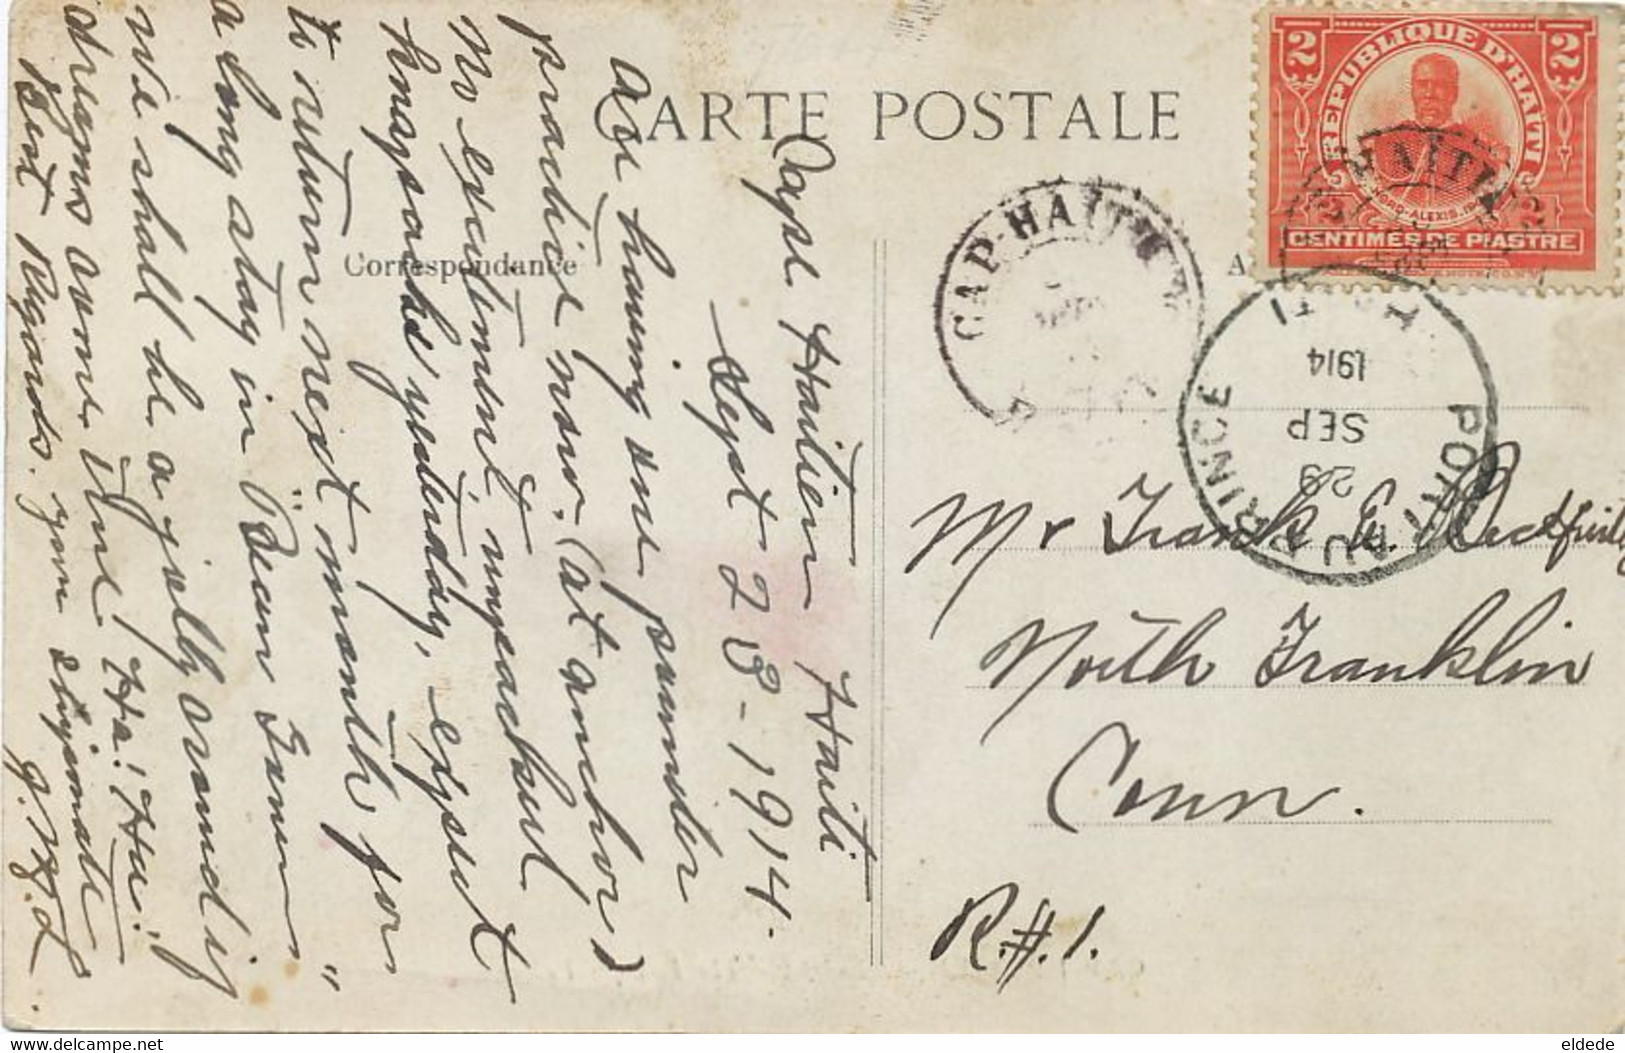 CARTE POSTALE
Correspondance
Cape Haitien Haiti
Sept 28-1914.
are having our powder
practice now. (at anchor)
No excitement, unpacked
knapsacks yesterday, expect
to return next month for
a long stay in "Bean Town"
we shall be a jolly crowd if
dreams come true! Ha! Ha!
Best Regards. your shipmate
Mr Frank E.
North Franklin
Conn.
R.#.1.
2 2
REPUBLIQUE D'HAÏTI
NORD-ALEXIS
CENTIMES DE PIASTRE
HAITI
CAP-HAÏTIEN
PORT AU PRINCE
29
SEP
1914
HAITI
www.delcampe.net
eldede